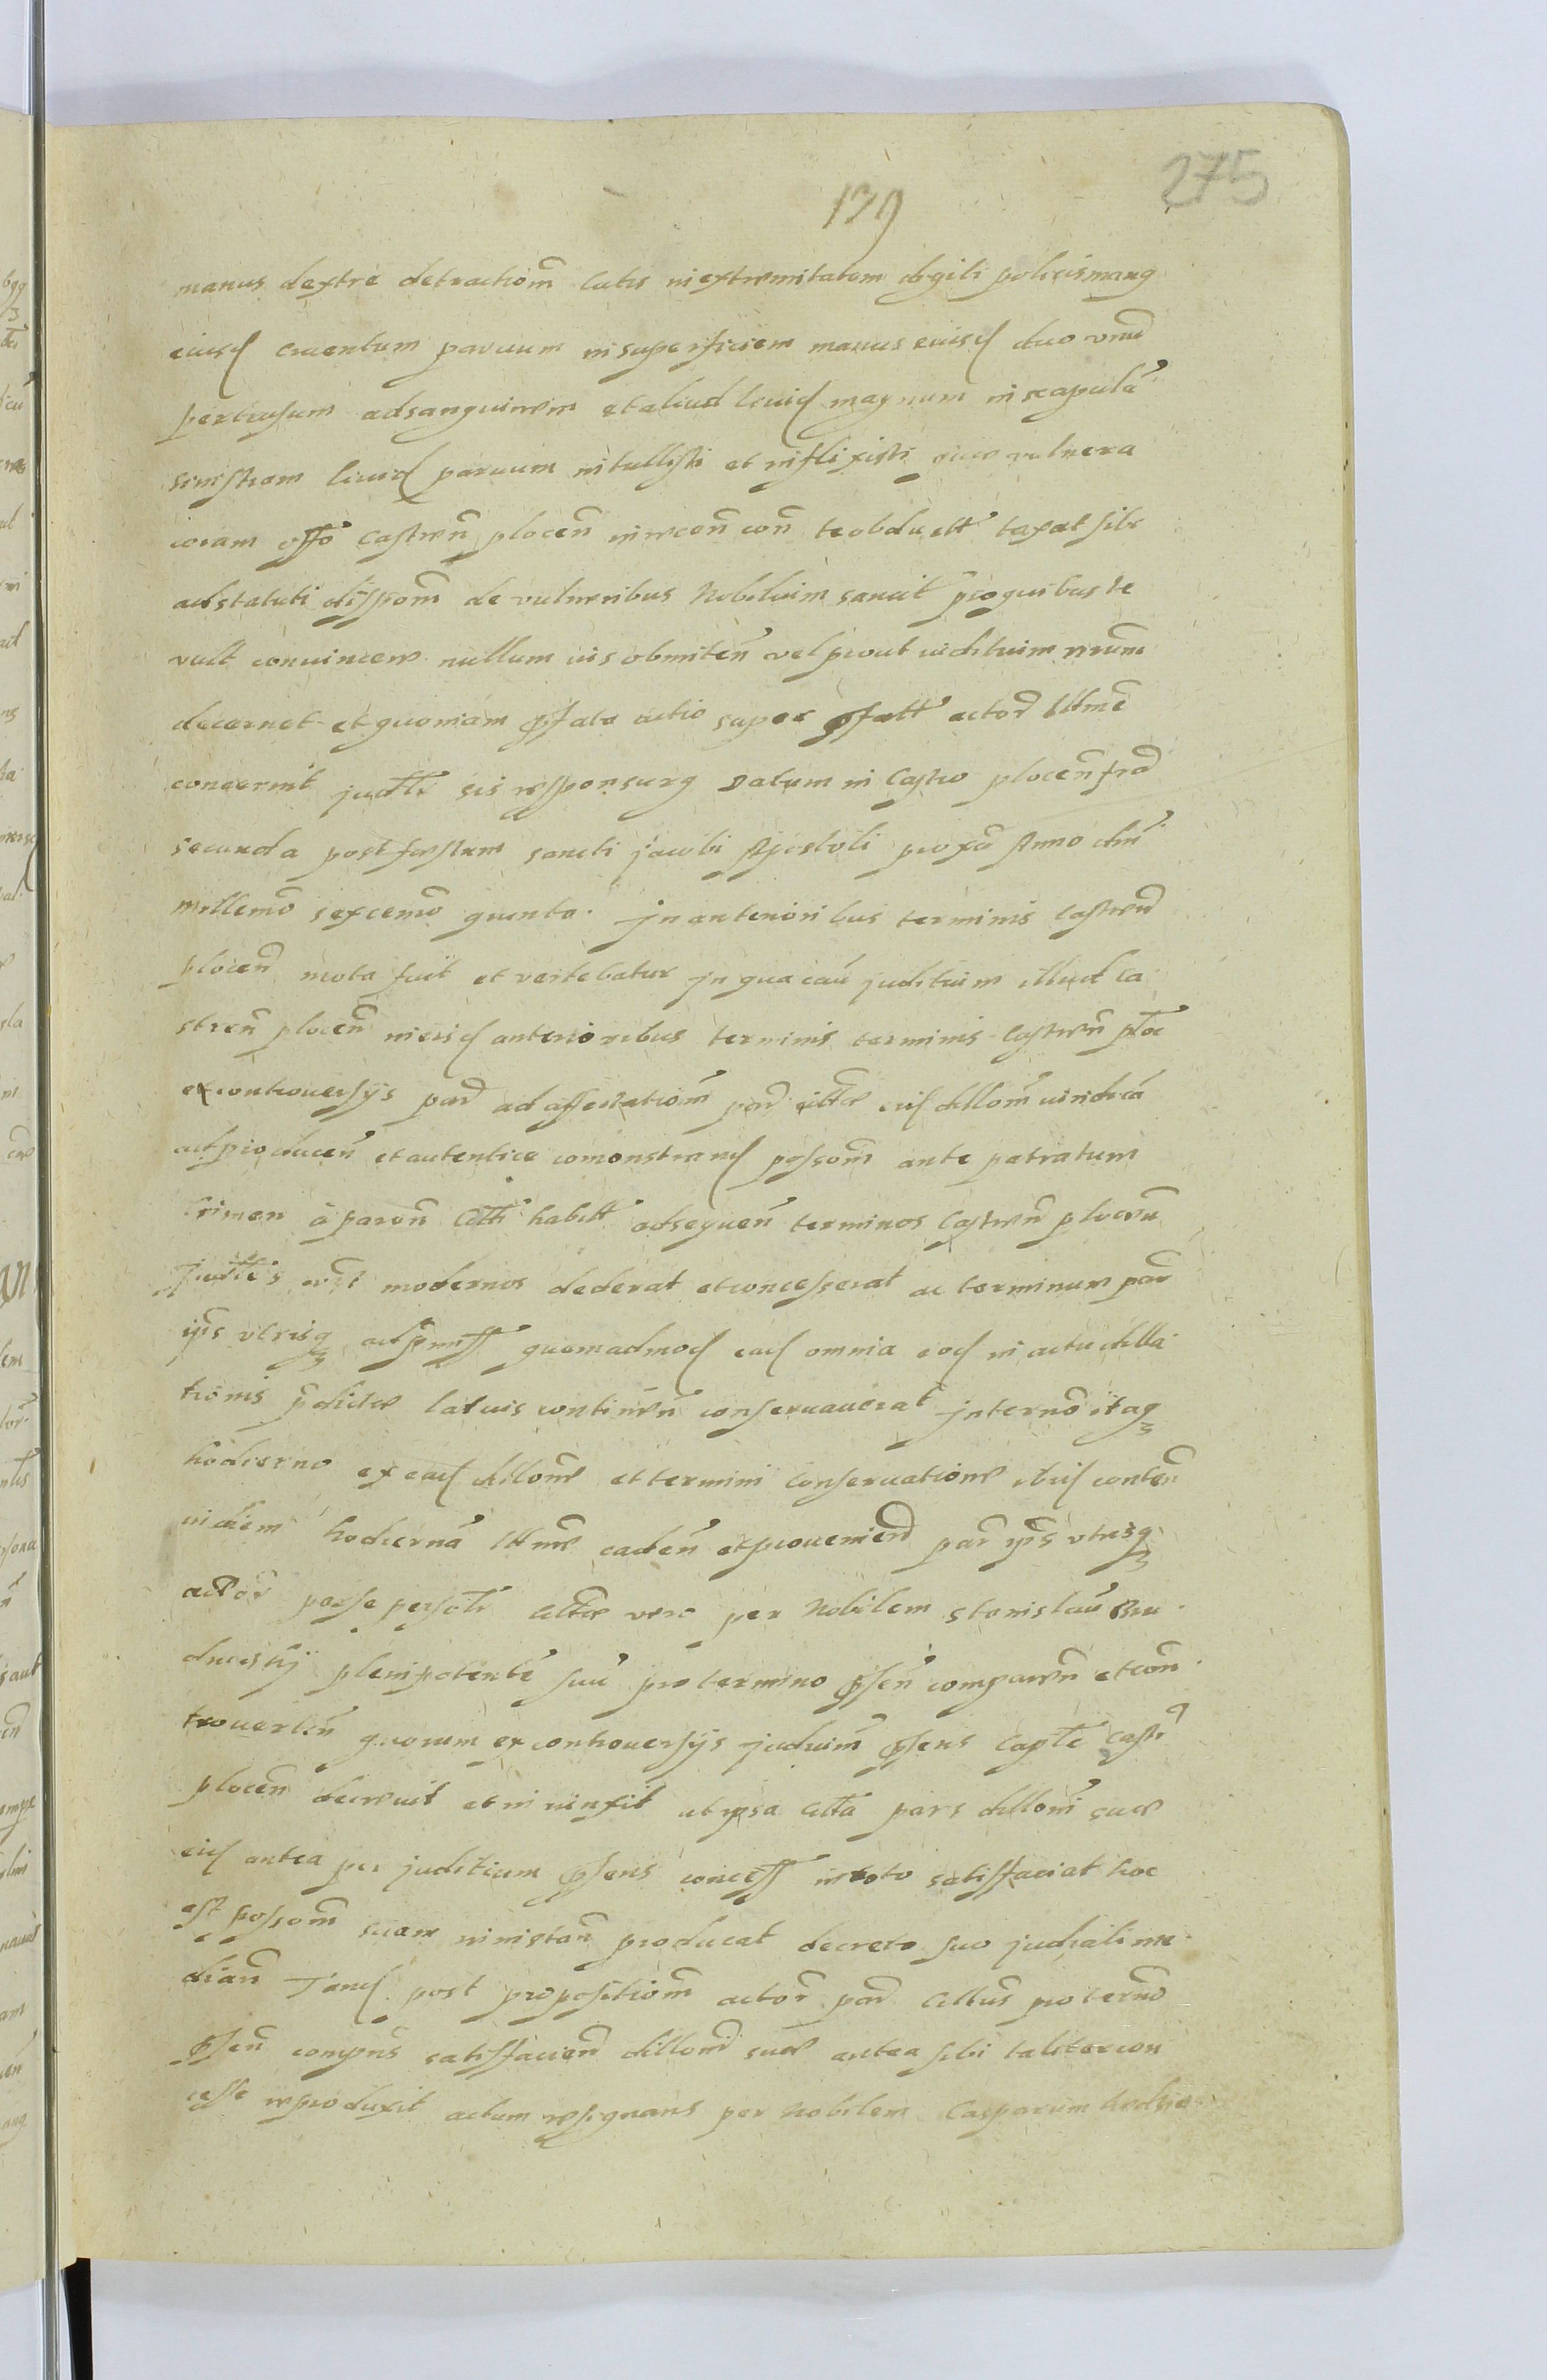 275
179
manus dextre detractiom̄ cutis in extremitatem digiti policis manq
eiusd cruentum paruum in superficiem manus euisd duo vnū
pertusum ad sanguinem et aliud liuid magnum in scapulā
sinistram liuid paruum intullisti et inflixisti que vulnera
coram offo Castreñ ploceñ in recoñ coñ te obductt taxat sibi
ad statuti dispoōm de vulneribus Nobilium sancit pro quibus te
vult conuincere nullum uis obmiteñ vel prout iuditium nrūm
decernet et quoniam pfata actio super pfatt actor lttme
conuenit judtr sis responsurq Datum in Castro ploceñ frā
secunda post festum sancti jacobi Apostoli proxā Anno dni
millemo sexcemo quinto. Jn anterioribus terminis Castreñ
ploceñ mota fuit et vertebatur jn qua cau juditium illud ca
streñ ploceñ in eisd anterioribus terminis terminis Castreñ ploc
ex controuersijs par ad affectatiom̄ par citte
ad produceñ et autentice comonstrand possom̄ ante patratum
crimen à pareñ citti habitt ad sequeñ terminos Castreñ ploceñ
Judtes modernos dederat et concesserat ac terminum par
ips vtrisq ad pmiss quemadmod ead omnia eod in actu dilla
tionis pdicte latuis contineñ conseruauerat Jn termo itaq
hodierno ex ead dillone et termini conseruatione ibid conteñ
in diem hodiernā lttme cadeñ et proueniend par ips vtrisq
actor per se persoltr Citte vero per Nobilem Stanislaū Bru
dnicskij plenipotentē suū pro termino pseñ compareñ et con
trouerteñ quorum ex controuersijs judiuim psens Capte Castr
ploceñ decreuit et iniunxit ut ipsa Citta pars dilloni sue
eid antea per juditium psens concess in toto satisfaciat hoc
est possom̄ suam in instañ producat decreto suo judiali me
diañ Tand post propositiom̄ actor par Cittus pro termo
pseñ compns satisfaciend dilloni sue antea sibi taliter con
cesse reproduxit actum resignans per Nobilem Casparum